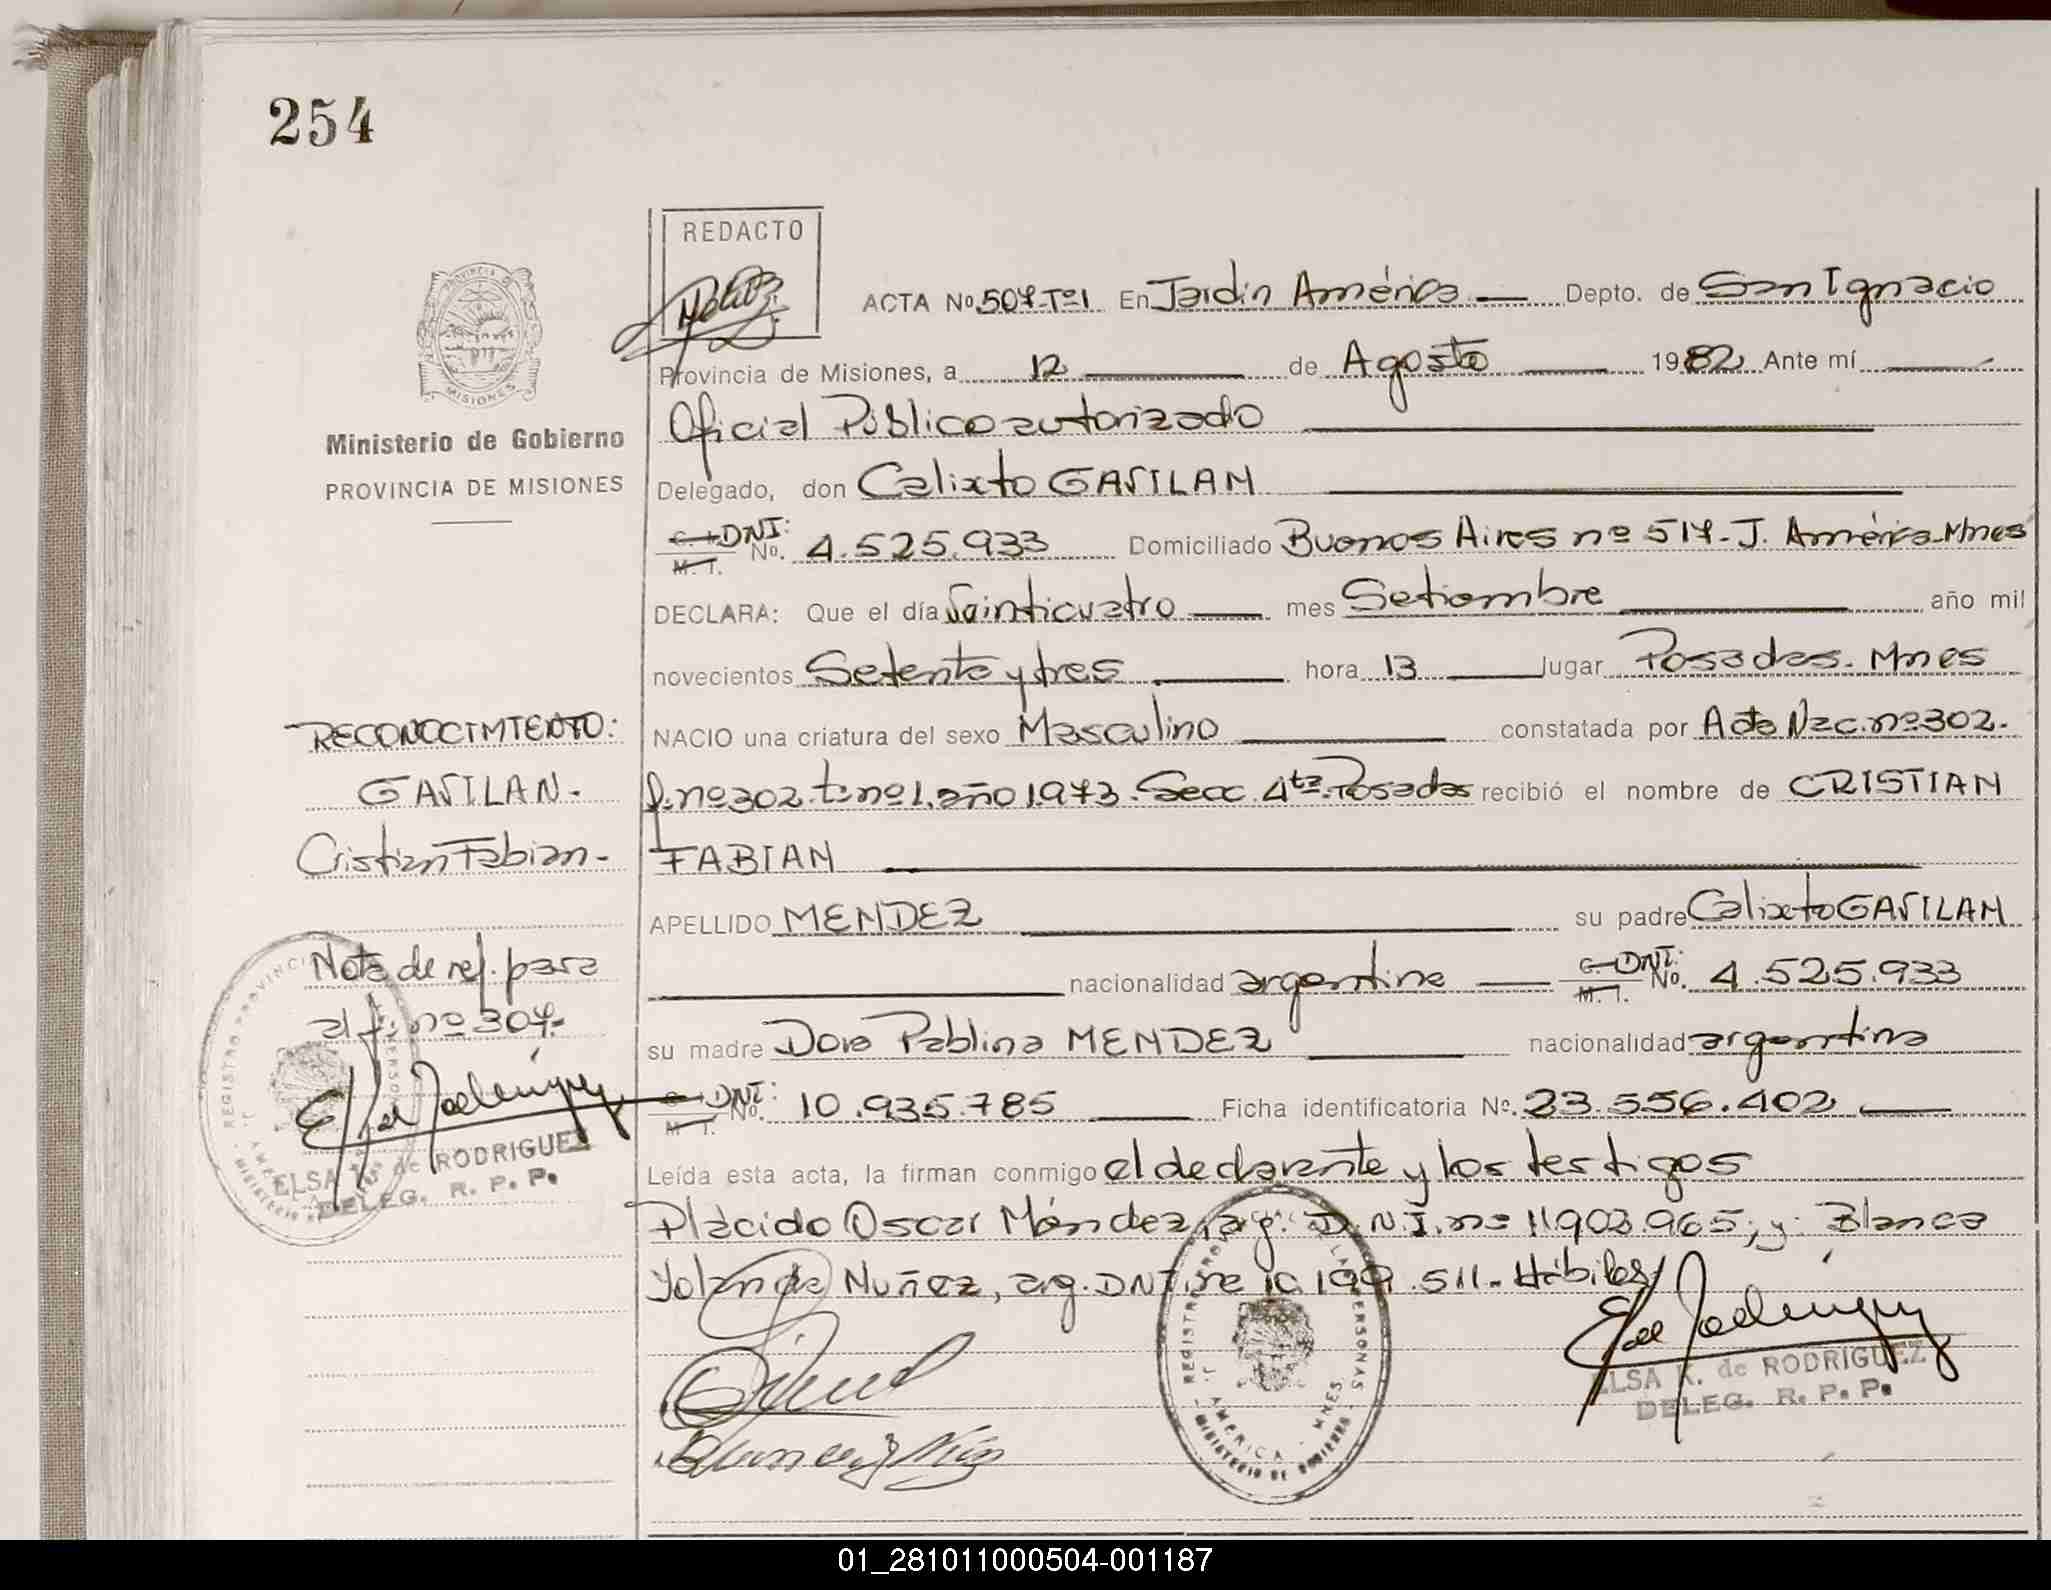 254
REDACTO
ACTA No. 507-Tº1 En Jardin América Depto. de San Ignacio
Provincia de Misiones, a 12 de Agosto 1982 Ante mí
Oficial Público autorizado
Ministerio de Gobierno
PROVINCIA DE MISIONES
Delegado, don Calixto GAVILAN
C. I. DNI: M. I. No. 4.525.933 Domiciliado Buenos Aires nº 517- J. América-Mnes
DECLARA: Que el día Vainticuatro mes Setiembre año mil
novecientos Setenta y tres hora 13 lugar Posadas. Mnes
NACIO una criatura del sexo Masculino constatada por Acta Nac. nº302.
fº nº302. tº nº1. año 1973. Secc. 4ta. Posadas recibió el nombre de CRISTIAN
FABIAN
APELLIDO MENDEZ su padre Calixto GAVILAN
nacionalidad argentina C. I. DNI: M. I. No. 4.525.933
su madre Dora Pablina MENDEZ nacionalidad argentina
C. I. DNI: M. I. No. 10.935.785 Ficha identificatoria No. 23.556.402
Leída esta acta, la firman conmigo el declarante y los testigos
Plácido Oscar Méndez, arg. D.N.I. nº 11.902.965; y Blanca
Yolanda Nuñez, arg. DNI. nº 10.199.511- Hábiles
RECONOCIMIENTO:
GAVILAN.
Cristian Fabian-
Nota de ref. para
al fº nº 307-
ELSA K. de RODRIGUEZ
DELEG. R. P. P.
ELSA K. de RODRIGUEZ
DELEG. R. P. P.
01_281011000504-001187